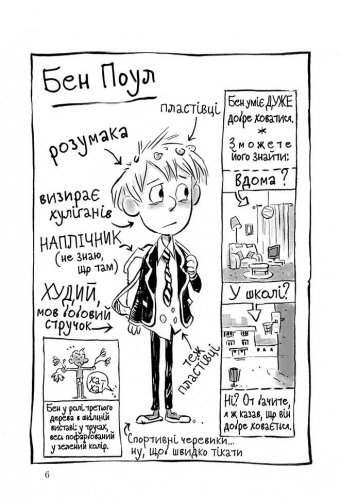 Бен Поул
пластівці
розумака
визирає
хуліганів
НАПЛІЧНИК
(не знаю,
що там)
ХУДИЙ,
мов бобовий
стручок
теж
пластівці
Бен у ролі третього
дерева в шкільній
виставі: у трусах,
весь пофарбований
у зелений колір.
Спортивні черевики...
ну, щоб швидко тікати
Бен уміє ДУЖЕ
добре ховатися.
*
Зможете
його знайти:
Вдома?
У школі?
Ні? От бачите,
я ж казав, що він
добре ховається.
6